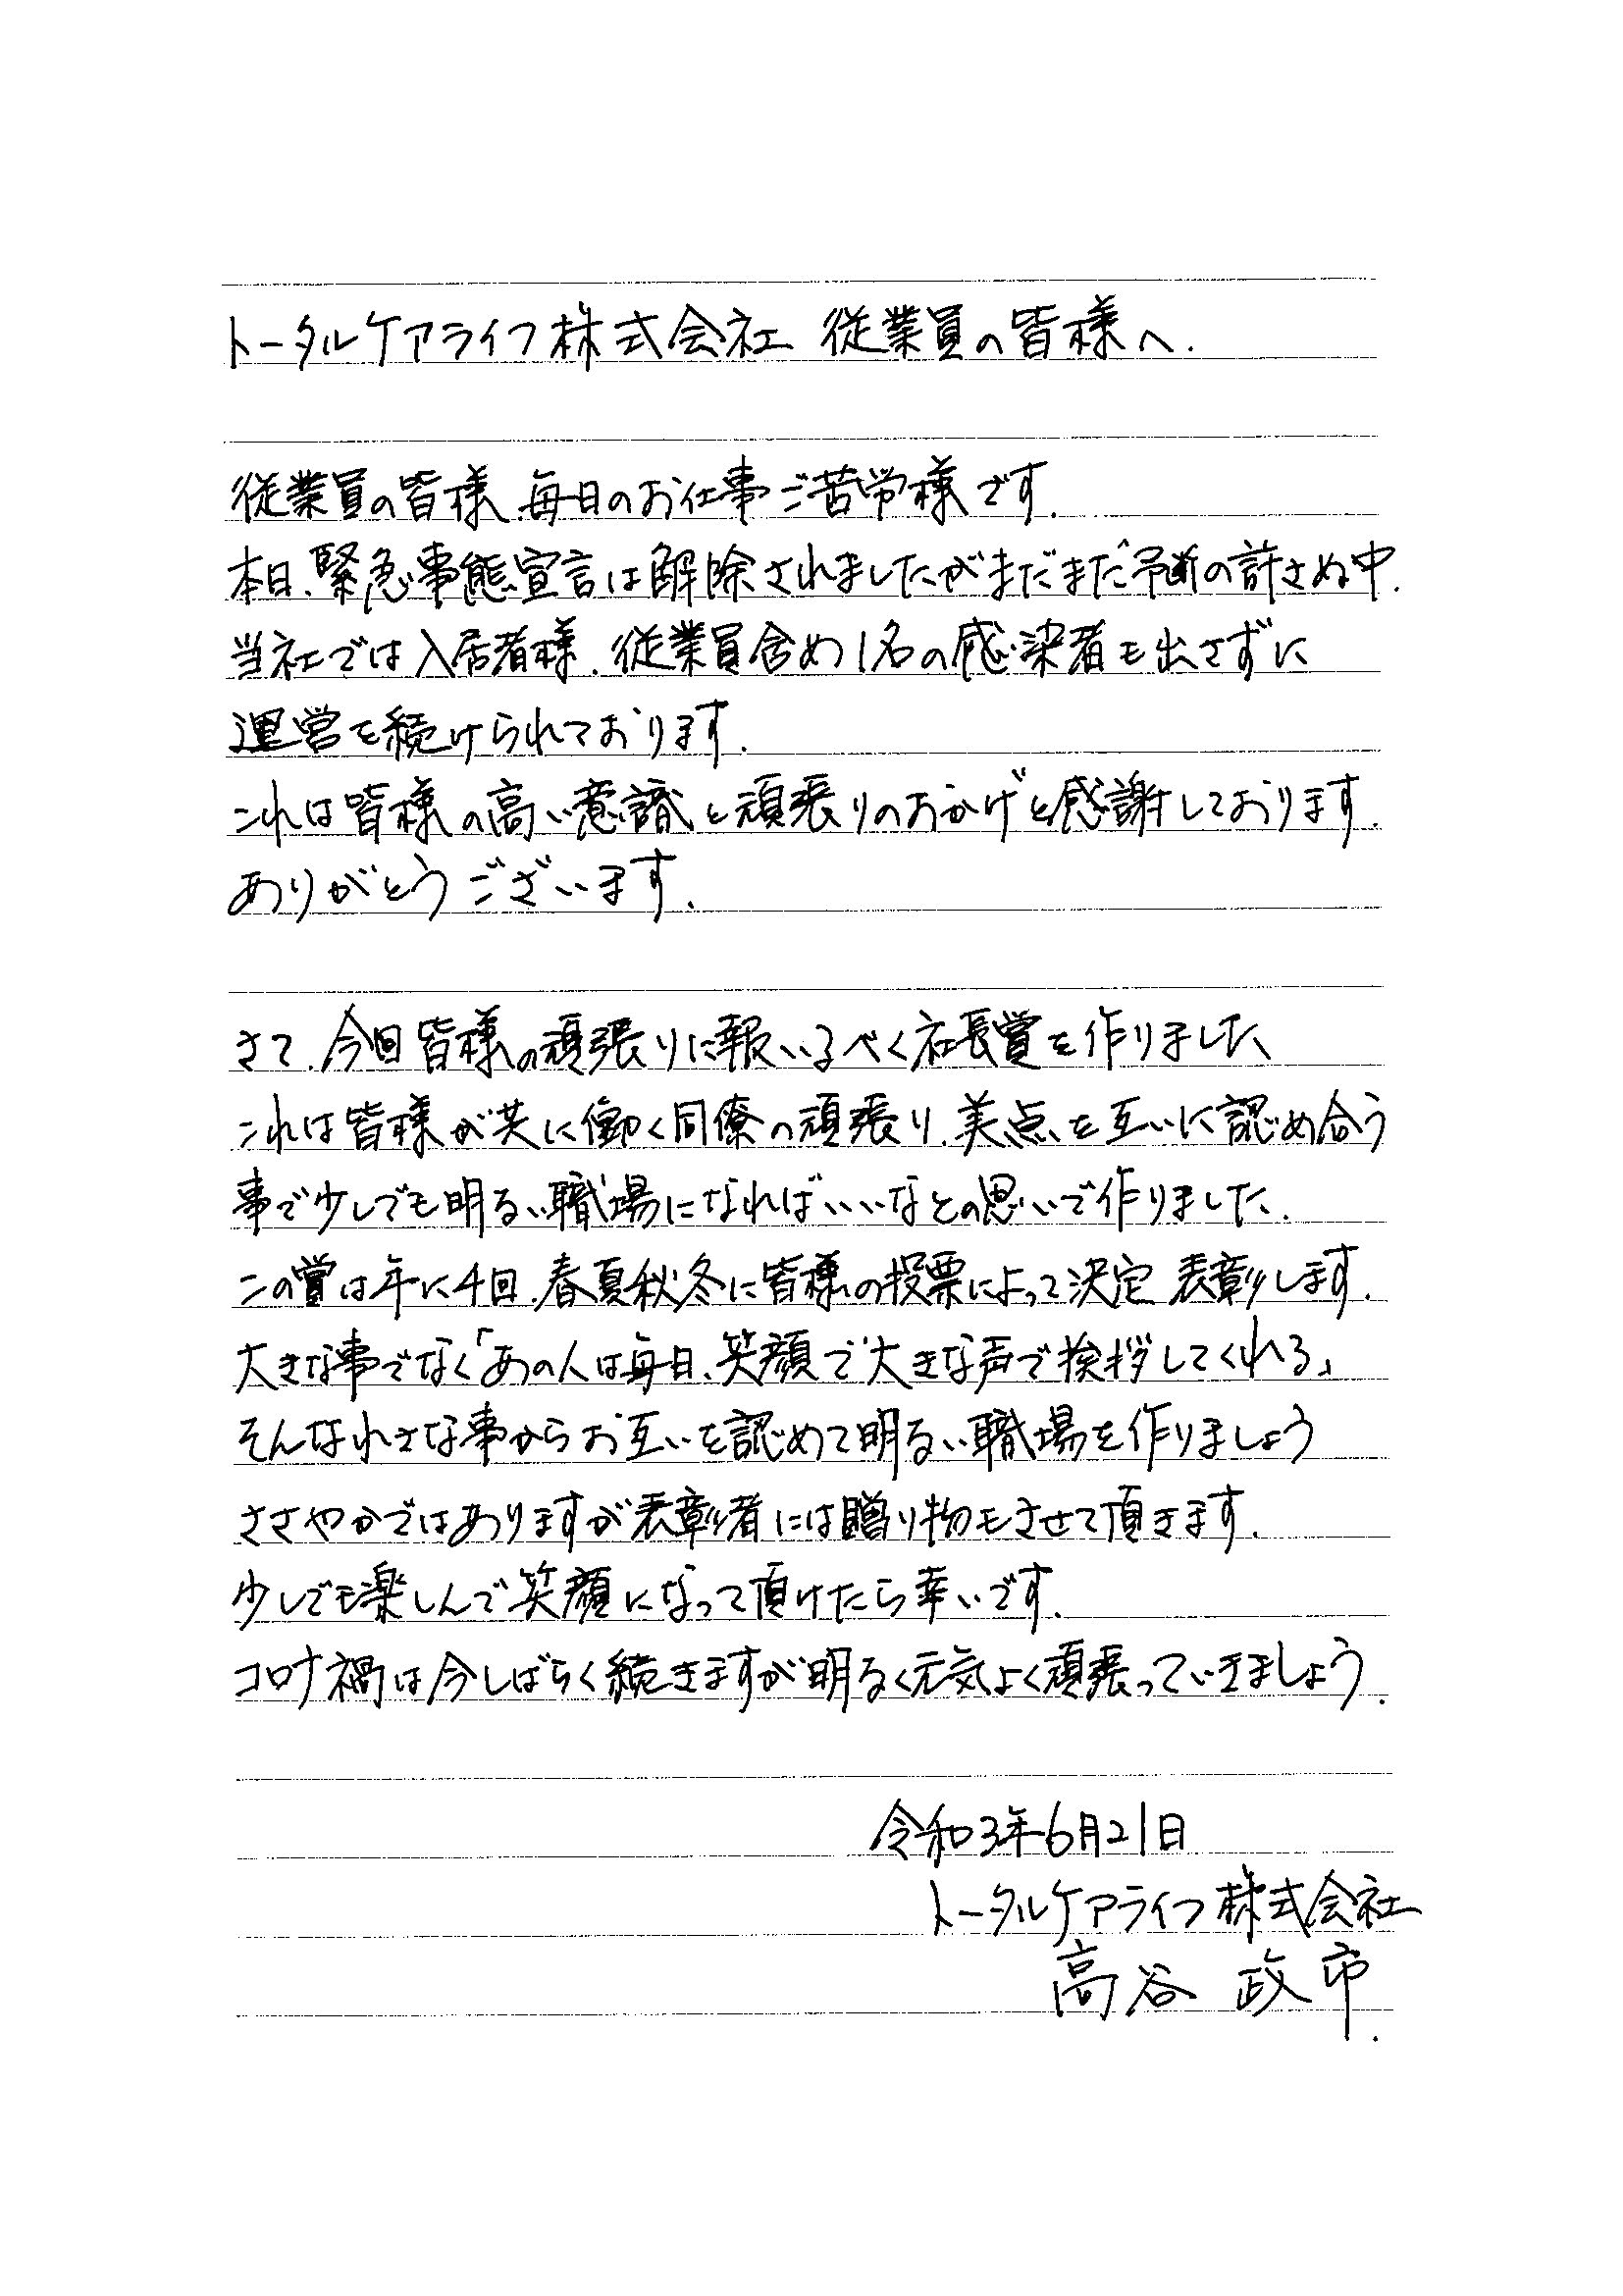 トータルケアライフ株式会社 従業員の皆様へ.
従業員の皆様、毎日のお仕事ご苦労様です.
本日、緊急事態宣言は解除されましたがまだまだ予断の許さぬ中.
当社では入居者様、従業員含め1名の感染者も出さずに
運営を続けられております.
これは皆様の高い意識と頑張りのおかげと感謝しております.
ありがとうございます.
さて、今回皆様の頑張りに報いるべく社長賞を作りました
これは皆様が共に働く同僚の頑張り、美点を互いに認め合う
事で少しでも明るい職場になればいいなとの思いで作りました.
この賞は年に4回、春夏秋冬に皆様の投票によって決定 表彰します.
大きな事でなく「あの人は毎日、笑顔で大きな声で挨拶してくれる」
そんな小さな事からお互いを認めて明るい職場を作りましょう
ささやかではありますが表彰者には贈り物もさせて頂きます.
少しでも楽しんで笑顔になって頂けたら幸いです.
コロナ禍は今しばらく続きますが明るく元気よく頑張っていきましょう.
令和3年6月21日
トータルケアライフ株式会社
高谷 政市.